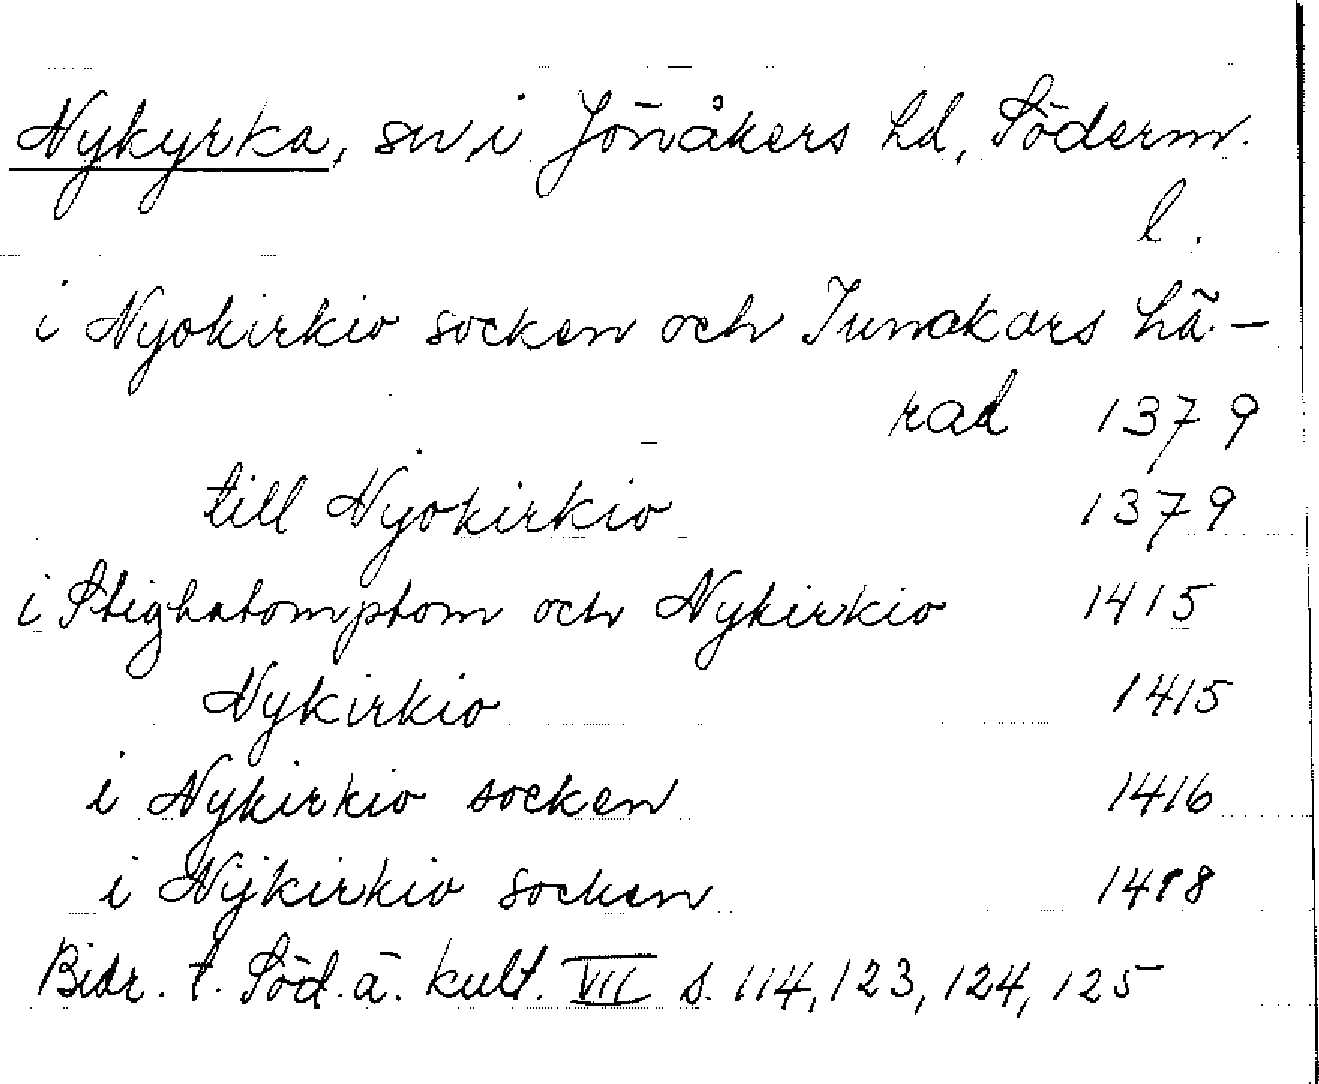 Nykyrka, sn, i Jönåkers hd, Söderm.
l.
i Nyokirkio socken och Junakars hä-
rad 1379
till Nyokirkio 1379
i Stighatomptom och Nykirkio 1415
Nykirkio 1415
i Nykirkio socken 1416
i Nijkirkio socken 1418
Bidr. t. Söd. ä. kult. VII s. 114, 123, 124, 125